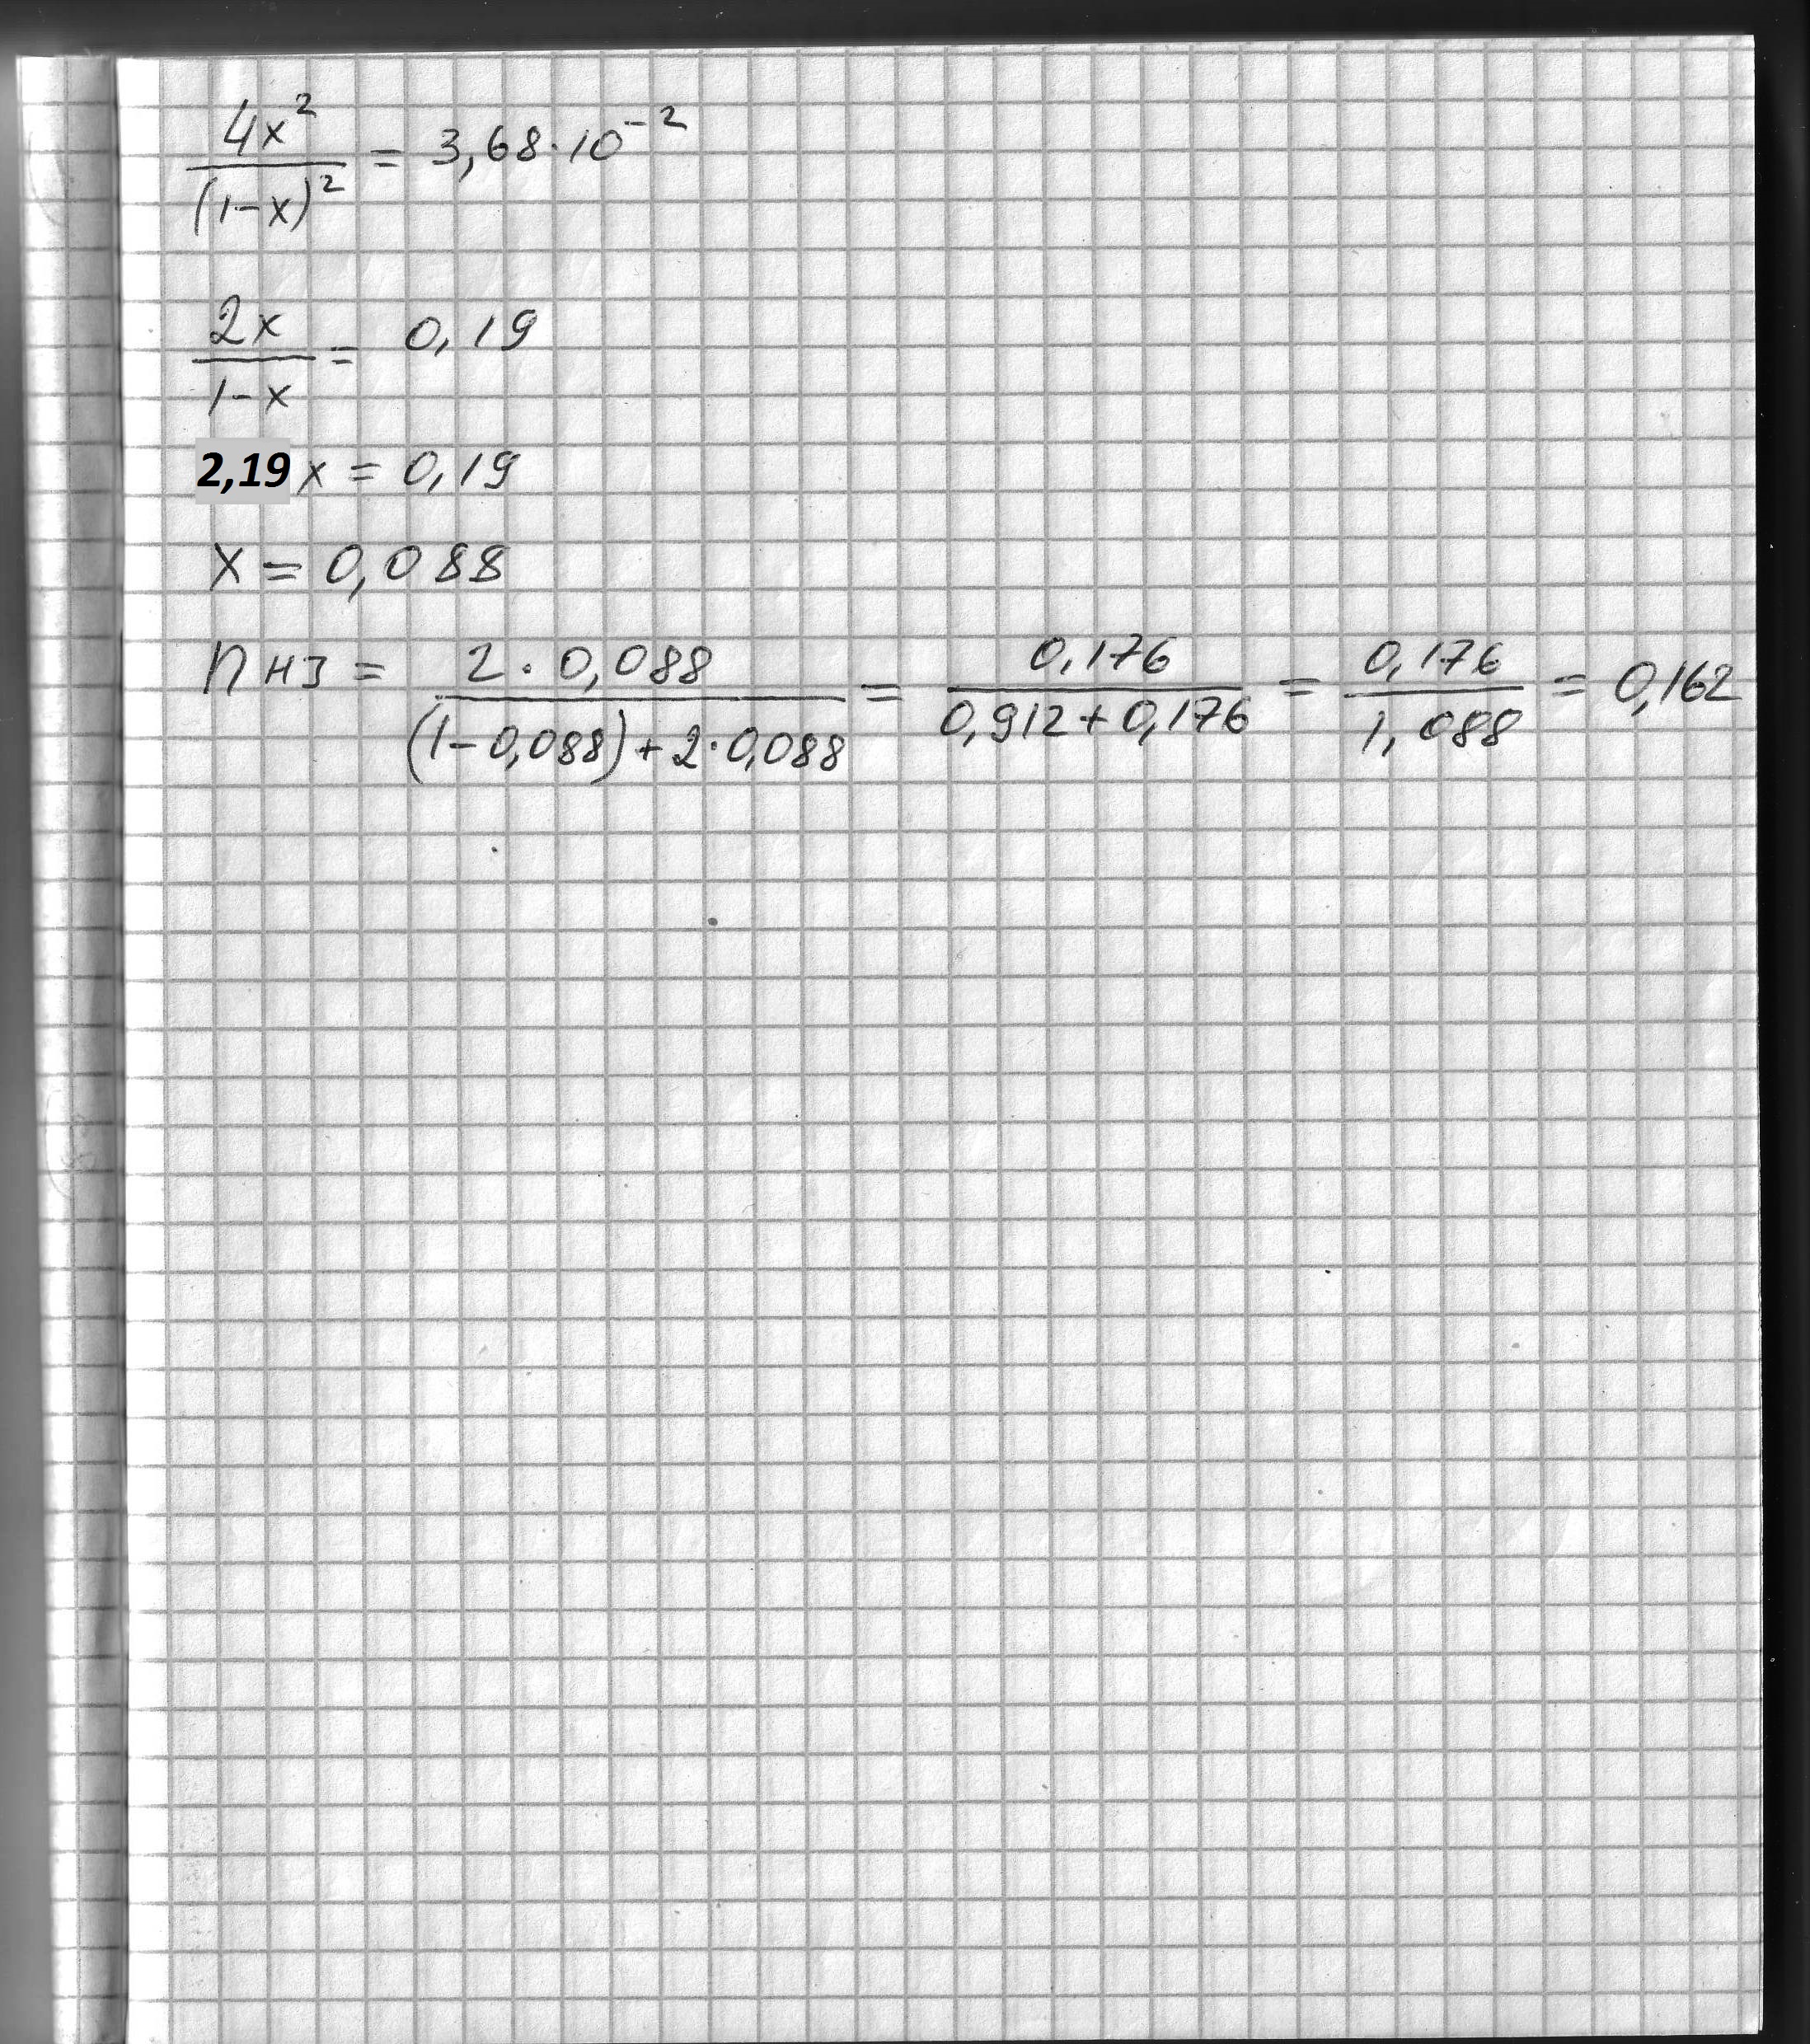 4x² / (1-x)² = 3,68·10⁻²
2x / 1-x = 0,19
2,19x = 0,19
x = 0,088
nнз = 2·0,088 / (1-0,088)+2·0,088 = 0,176 / 0,912+0,176 = 0,176 / 1,088 = 0,162